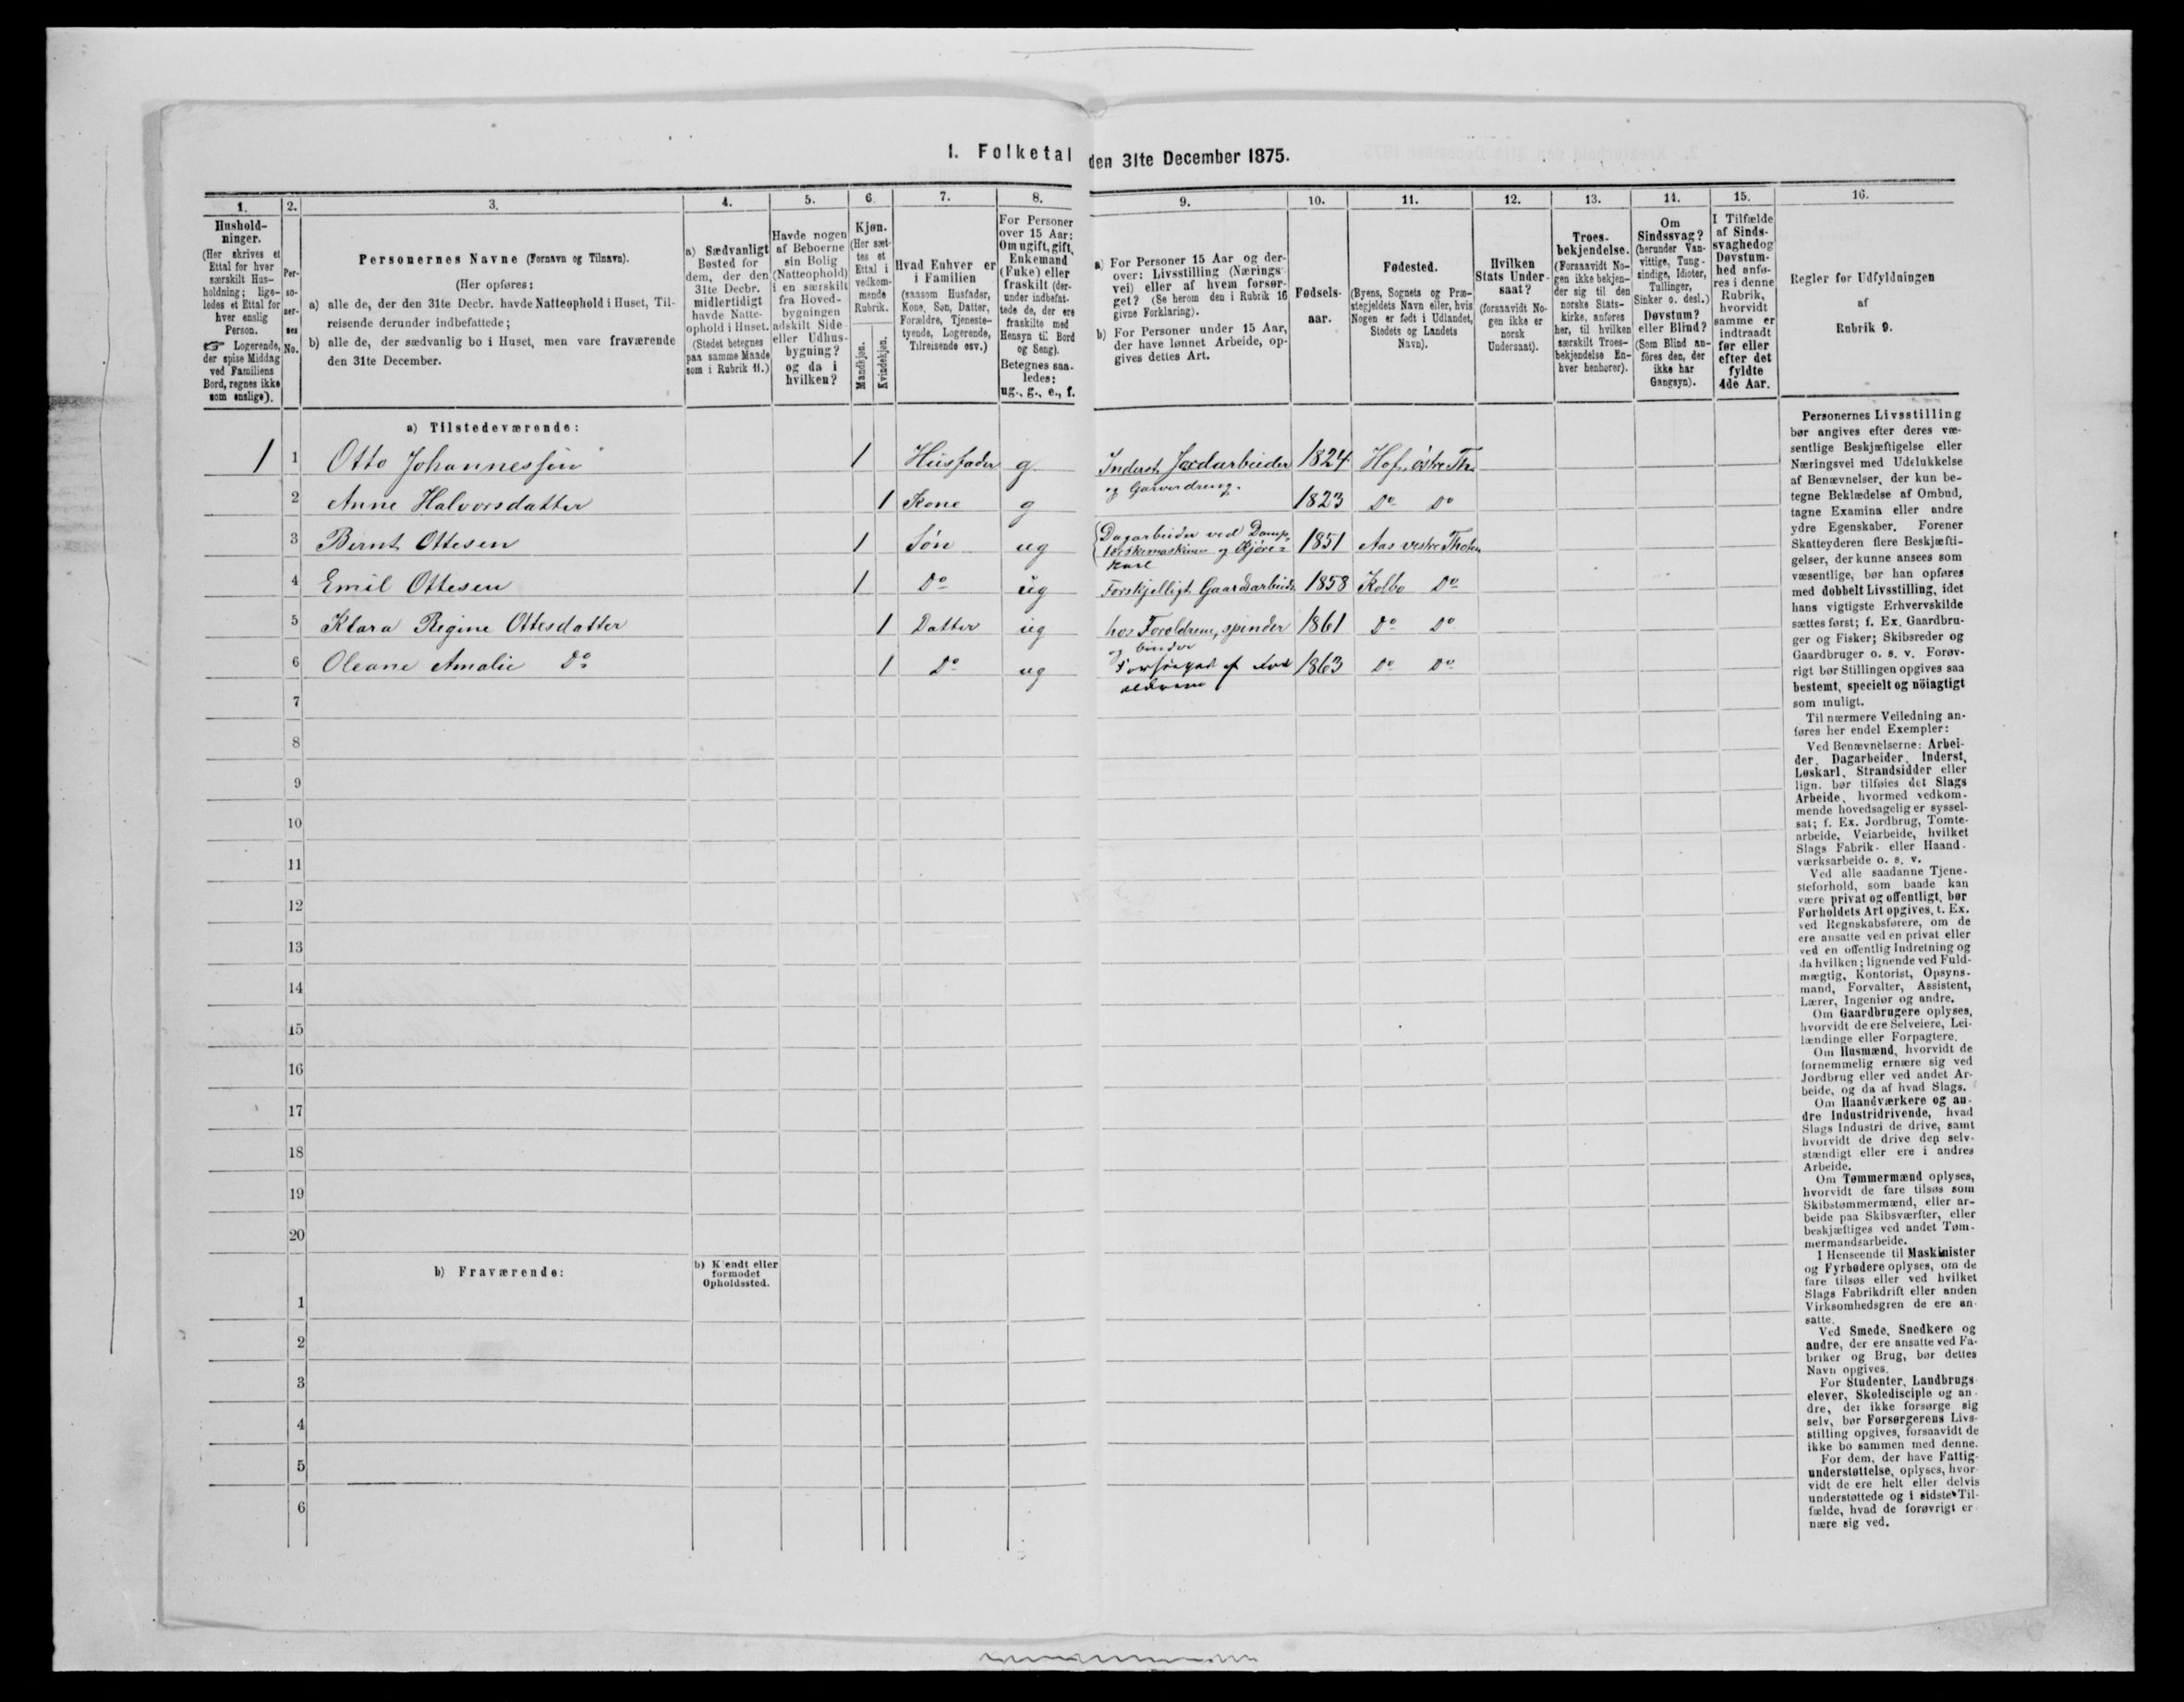 1. Folketal den 31te December 1875.
1.
Hushold-
ninger.
(Her skrives et
Ettal for hver
særskilt Hus-
holdning; lige-
ledes et Ettal for
hver enslig
Person.
☞ Logerende,
der spise Middag
ved Familiens
Bord, regnes ikke
som enslige).
2.
Per-
so-
ner-
nes
No.
3.
Personernes Navne (Fornavn og Tilnavn).
(Her opføres:
a) alle de, der den 31te Decbr. havde Natteophold i Huset, Til-
reisende derunder indbefattede;
b) alle de, der sædvanlig bo i Huset, men vare fraværende
den 31te December.
4.
a) Sædvanligt
Bosted for
dem, der den
31te Decbr.
midlertidigt
havde Natte-
ophold i Huset.
(Stedet betegnes
paa samme Maade
som i Rubrik 11.)
5.
Havde nogen
af Beboerne
sin Bolig
(Natteophold)
i en særskilt
fra Hoved-
bygningen
adskilt Side-
eller Udhus-
bygning?
og da i
hvilken?
6.
Kjøn.
(Her sæt-
tes et
Ettal i
vedkom-
mende
Rubrik.
Mandkjøn.
Kvindekjøn.
7.
Hvad Enhver er
i Familien
(saasom Husfader,
Kone, Søn, Datter,
Forældre, Tjeneste-
tyende, Logerende,
Tilreisende osv.)
8.
For Personer
over 15 Aar:
Om ugift, gift,
Enkemand
(Enke) eller
fraskilt (der-
under indbefat-
tede de, der ere
fraskilte med
Hensyn til Bord
og Seng).
Betegnes saa-
ledes:
ug., g., e., f.
9.
a) For Personer 15 Aar og der-
over: Livsstilling (Nærings-
vei) eller af hvem forsør-
get? (Se herom den i Rubrik 16
givne Forklaring).
b) For Personer under 15 Aar,
der have lønnet Arbeide, op-
gives dettes Art.
10.
Fødsels-
aar.
11.
Fødested.
(Byens, Sognets og Præ-
stegjeldets Navn eller, hvis
Nogen er født i Udlandet,
Stedets og Landets
Navn).
12.
Hvilken
Stats Under-
saat?
(forsaavidt No-
gen ikke er
norsk
Undersaat).
13.
Troes-
bekjendelse.
(Forsaavidt No-
gen ikke bekjen-
der sig til den
norske Stats-
kirke, anføres
her, til hvilken
særskilt Troes-
bekjendelse En-
hver henhører).
14.
Om
Sindssvag?
(herunder Van-
vittige, Tung-
sindige, Idioter,
Tullinger,
Sinker o. desl.)
Døvstum?
eller Blind?
(Som Blind an-
føres den, der
ikke har
Gangsyn).
15.
I Tilfælde
af Sinds-
svaghed og
Døvstum-
hed anfø-
res i denne
Rubrik,
hvorvidt
samme er
indtraadt
før eller
efter det
fyldte
4de Aar.
16.
Regler for Udfyldningen
af
Rubrik 9.
a) Tilstedeværende:
1 1 Otto Johannessøn 1 Husfader g Inderst, Jordarbeider 1824 Hof, østre Th.
og Garverdreng.
2 Anne Halvorsdatter 1 Kone g 1823 Do Do
3 Bernt Ottesen 1 Søn ug Dagarbeider ved Damp- 1851 Aas vestre Thoten
tærskemaskinen og Kjøre-
karl
4 Emil Ottesen 1 Do ug Forskjelligt Gaardsarbeide 1858 Kolbo Do
5 Klara Regine Ottesdatter 1 Datter ug hos Forældrene, spinder 1861 Do Do
og binder
6 Oleane Amalie Do 1 Do ug Forsørget af For 1863 Do Do
ældrene
7
8
9
10
11
12
13
14
15
16
17
18
19
20
b) Fraværende:
b) Kjendt eller
formodet
Opholdssted.
1
2
3
4
5
6
Personernes Livsstilling
bør angives efter deres væ-
sentlige Beskjæftigelse eller
Næringsvei med Udelukkelse
af Benævnelser, der kun be-
tegne Beklædelse af Ombud,
tagne Examina eller andre
ydre Egenskaber. Forener
Skatteyderen flere Beskjæfti-
gelser, der kunne ansees som
væsentlige, bør han opføres
med dobbelt Livsstilling, idet
hans vigtigste Erhvervskilde
sættes først; f. Ex. Gaardbru-
ger og Fisker; Skibsreder og
Gaardbruger o. s. v. Forøv-
rigt bør Stillingen opgives saa
bestemt, specielt og nöiagtigt
som muligt.
Til nærmere Veiledning an-
føres her endel Exempler:
Ved Benævnelserne: Arbei-
der, Dagarbeider, Inderst,
Løskarl, Strandsidder eller
lign. bør tilføies det Slags
Arbeide, hvormed vedkom-
mende hovedsagelig er syssel-
sat; f. Ex. Jordbrug, Tomte-
arbeide, Veiarbeide, hvilket
Slags Fabrik- eller Haand-
værksarbeide o. s. v.
Ved alle saadanne Tjene-
steforhold, som baade kan
være privat og offentligt, bør
Forholdets Art opgives, t. Ex.
ved Regnskabsførere, om de
ere ansatte ved en privat eller
ved en offentlig Indretning og
da hvilken; lignende ved Fuld-
mægtig, Kontorist, Opsyns-
mand, Forvalter, Assistent,
Lærer, Ingeniør og andre.
Om Gaardbrugere oplyses,
hvorvidt de ere Selveiere, Lei-
lændinge eller Forpagtere.
Om Husmænd, hvorvidt de
fornemmelig ernære sig ved
Jordbrug eller ved andet Ar-
beide, og da af hvad Slags.
Om Haandværkere og an-
dre Industridrivende, hvad
Slags Industri de drive, samt
hvorvidt de drive den selv-
stændigt eller ere i andres
Arbeide.
Om Tømmermænd oplyses,
hvorvidt de fare tilsøs som
Skibstømmermænd, eller ar-
beide paa Skibsværfter, eller
beskjæftiges ved andet Tøm-
mermandsarbeide.
I Henseende til Maskinister
og Fyrbødere oplyses, om de
fare tilsøs eller ved hvilket
Slags Fabrikdrift eller anden
Virksomhedsgren de ere an-
satte.
Ved Smede, Snedkere og
andre, der ere ansatte ved Fa-
briker og Brug, bør dettes
Navn opgives.
For Studenter, Landbrugs-
elever, Skoledisciple og an-
dre, der ikke forsørge sig
selv, bør Forsørgerens Livs-
stilling opgives, forsaavidt de
ikke bo sammen med denne.
For dem, der have Fattig-
understøttelse, oplyses, hvor-
vidt de ere helt eller delvis
understøttede og i sidste Til-
fælde, hvad de forøvrigt er-
nære sig ved.